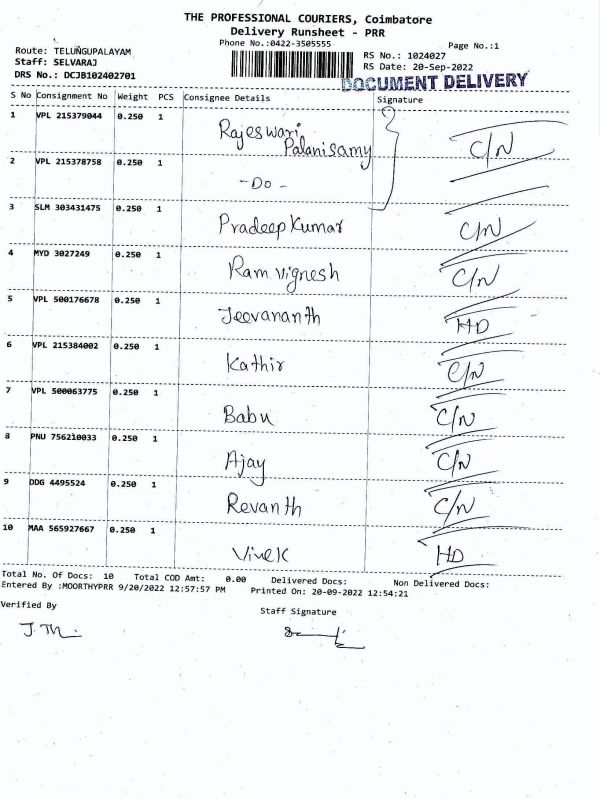 THE PROFESSIONAL COURIERS, Coimbatore
Delivery Runsheet - PRR
Phone No.:0422-3505555
Page No.:1
Route: TELUNGUPALAYAM
Staff: SELVARAJ
DRS No.: DCJB102402701
RS No.: 1024027
RS Date: 20-Sep-2022
DOCUMENT DELIVERY
S No Consignment No Weight PCS Consignee Details Signature
1 VPL 215379044 0.250 1 Rajeswari Palanisamy C/N
2 VPL 215378758 0.250 1 - Do -
3 SLM 303431475 0.250 1 Pradeep Kumar C/N
4 MYD 3027249 0.250 1 Ram Vignesh C/N
5 VPL 500176678 0.250 1 Jeevananth HD
6 VPL 215384002 0.250 1 Kathir C/N
7 VPL 500063775 0.250 1 Babu C/N
8 PNU 756210033 0.250 1 Ajay C/N
9 DDG 4495524 0.250 1 Revanth C/N
10 MAA 565927667 0.250 1 Vivek HD
Total No. Of Docs: 10 Total COD Amt: 0.00 Delivered Docs: Non Delivered Docs:
Entered By :MOORTHYPRR 9/20/2022 12:57:57 PM Printed On: 20-09-2022 12:54:21
Verified By
Staff Signature